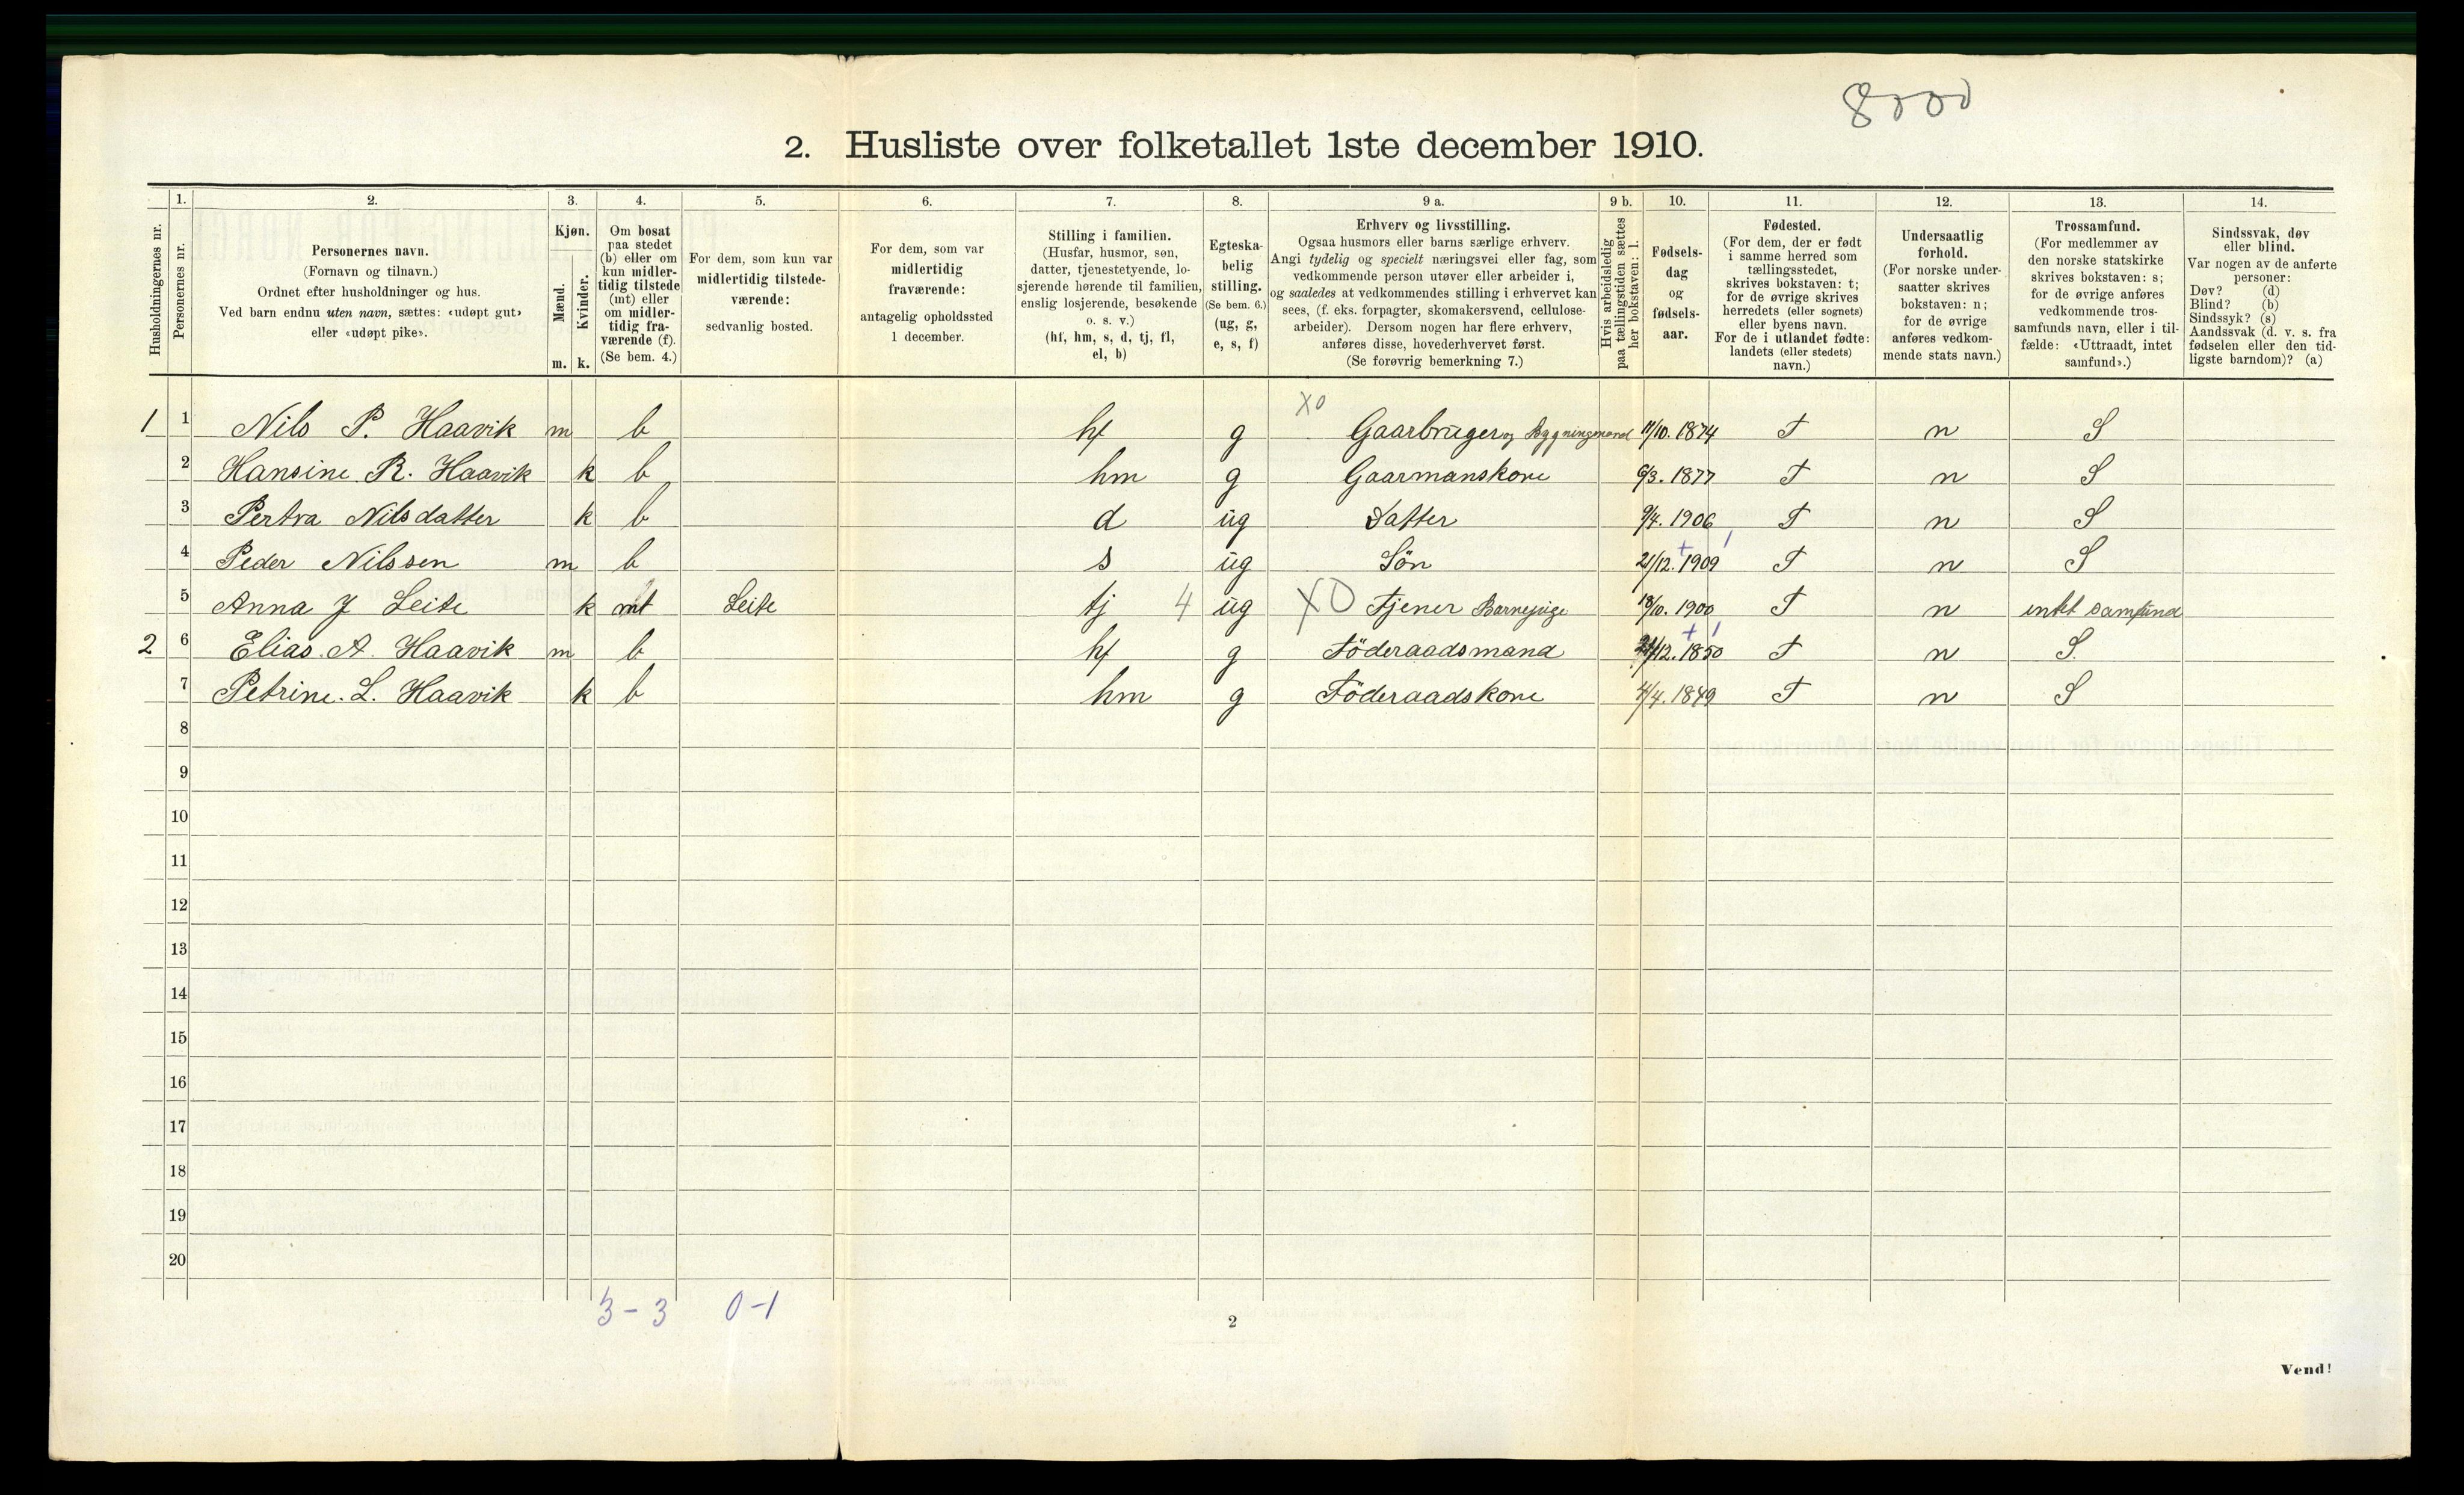 8000
2. Husliste over folketallet 1ste december 1910.
Husholdningernes nr.
1.
Personernes nr.
2.
Personernes navn.
(Fornavn og tilnavn.)
Ordnet efter husholdninger og hus.
Ved barn endnu uten navn, sættes: «udøpt gut»
eller «udøpt pike».
3.
Kjøn.
Mænd.
Kvinder.
m. k.
4.
Om bosat
paa stedet
(b) eller om
kun midler-
tidig tilstede
(mt) eller
om midler-
tidig fra-
værende (f).
(Se bem. 4.)
5.
For dem, som kun var
midlertidig tilstede-
værende:
sedvanlig bosted.
6.
For dem, som var
midlertidig
fraværende:
antagelig opholdssted
1 december.
7.
Stilling i familien.
(Husfar, husmor, søn,
datter, tjenestetyende, lo-
sjerende hørende til familien,
enslig losjerende, besøkende
o. s. v.)
(hf, hm, s, d, tj, fl,
el, b)
8.
Egteska-
belig
stilling.
(Se bem. 6.)
(ug, g,
e, s, f)
9 a.
Erhverv og livsstilling.
Ogsaa husmors eller barns særlige erhverv.
Angi tydelig og specielt næringsvei eller fag, som
vedkommende person utøver eller arbeider i,
og saaledes at vedkommendes stilling i erhvervet kan
sees, (f. eks. forpagter, skomakersvend, cellulose-
arbeider). Dersom nogen har flere erhverv,
anføres disse, hovederhvervet først.
(Se forøvrig bemerkning 7.)
9 b.
Hvis arbeidsledig
paa tællingstiden sættes
her bokstaven: l.
10.
Fødsels-
dag
og
fødsels-
aar.
11.
Fødested.
(For dem, der er født
i samme herred som
tællingsstedet,
skrives bokstaven: t;
for de øvrige skrives
herredets (eller sognets)
eller byens navn.
For de i utlandet fødte:
landets (eller stedets)
navn.)
12.
Undersaatlig
forhold.
(For norske under-
saatter skrives
bokstaven: n;
for de øvrige
anføres vedkom-
mende stats navn.)
13.
Trossamfund.
(For medlemmer av
den norske statskirke
skrives bokstaven: s;
for de øvrige anføres
vedkommende tros-
samfunds navn, eller i til-
fælde: «Uttraadt, intet
samfund».)
14.
Sindssvak, døv
eller blind.
Var nogen av de anførte
personer:
Døv? (d)
Blind? (b)
Sindssyk? (s)
Aandssvak (d. v. s. fra
fødselen eller den tid-
ligste barndom)? (a)
X0
1 1 Nils P. Haavik m b hf g Gaarbruger og Bygningmand 11/10. 1874 T n S
2 Hansine R. Haavik k b hm g Gaarmanskone 6/3. 1877 T n S
3 Pertra Nilsdatter k b d ug Datter 9/4. 1906 T n S
4 Peder Nilssen m b s ug Sön 21/12. 1909 T n S
5 Anna J Leite k mt Leite tj 4 ug X0 Tjener Barnepige 18/10. 1900 T n intet samfund
2 6 Elias A. Haavik m b hf g Föderaadsmand /12. 1850 T n S.
7 Petrine. L. Haavik k b hm g Föderaadskone 4/4. 1849 T n S
8
9
10
11
12
13
14
15
16
17
18
19
20
3 - 3 0 - 1
2
Vend!